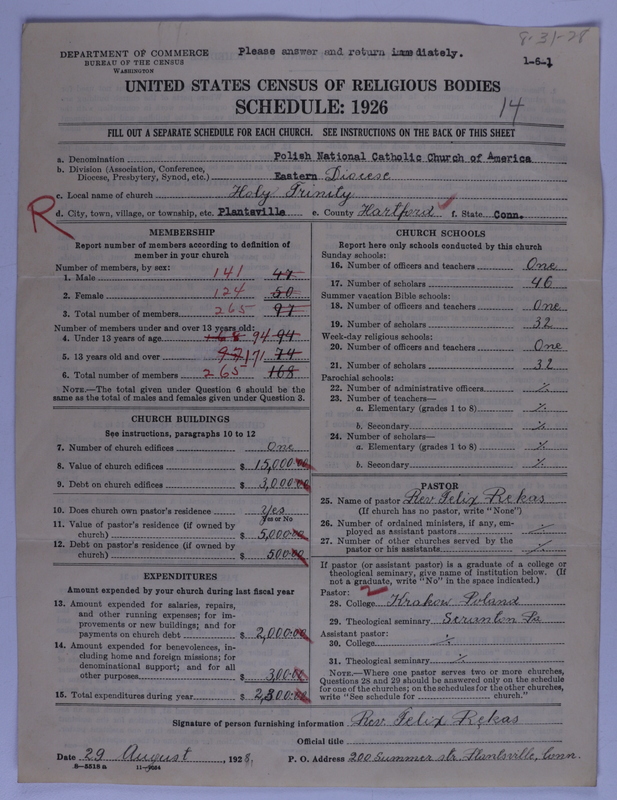 8-31-28
DEPARTMENT OF COMMERCE
BUREAU OF THE CENSUS
WASHINGTON
Please answer and return immediately.
1-6-1
UNITED STATES CENSUS OF RELIGIOUS BODIES
SCHEDULE: 1926
14
FILL OUT A SEPARATE SCHEDULE FOR EACH CHURCH. SEE INSTRUCTIONS ON THE BACK OF THIS SHEET
a. Denomination Polish National Catholic Church of America
b. Division (Association, Conference,
Diocese, Presbytery, Synod, etc.) Eastern Diocese
c. Local name of church Holy Trinity
R
d. City, town, village, or township, etc. Plantsville e. County Hartford f. State Conn.
MEMBERSHIP
Report number of members according to definition of
member in your church
Number of members, by sex:
1. Male 141 47
2. Female 124 50
3. Total number of members 265 97
Number of members under and over 13 years old:
4. Under 13 years of age 168 94 94
5. 13 years old and over 97 171 74
6. Total number of members 265 168
NOTE.—The total given under Question 6 should be the
same as the total of males and females given under Question 3.
CHURCH BUILDINGS
See instructions, paragraphs 10 to 12
7. Number of church edifices One
8. Value of church edifices $ 15,000.00
9. Debt on church edifices $ 3,000.00
10. Does church own pastor's residence Yes
Yes or No
11. Value of pastor's residence (if owned by
church) $ 5,000.00
12. Debt on pastor's residence (if owned by
church) $ 500.00
EXPENDITURES
Amount expended by your church during last fiscal year
13. Amount expended for salaries, repairs,
and other running expenses; for im-
provements or new buildings; and for
payments on church debt $ 2,000.00
14. Amount expended for benevolences, in-
cluding home and foreign missions; for
denominational support; and for all
other purposes $ 300.00
15. Total expenditures during year $ 2,300.00
CHURCH SCHOOLS
Report here only schools conducted by this church
Sunday schools:
16. Number of officers and teachers One
17. Number of scholars 46
Summer vacation Bible schools:
18. Number of officers and teachers One
19. Number of scholars 32
Week-day religious schools:
20. Number of officers and teachers One
21. Number of scholars 32
Parochial schools:
22. Number of administrative officers
23. Number of teachers—
a. Elementary (grades 1 to 8)
b. Secondary
24. Number of scholars—
a. Elementary (grades 1 to 8)
b. Secondary
PASTOR
25. Name of pastor Rev Felix Rekas
(If church has no pastor, write "None")
26. Number of ordained ministers, if any, em-
ployed as assistant pastors
27. Number of other churches served by the
pastor or his assistants
If pastor (or assistant pastor) is a graduate of a college or
theological seminary, give name of institution below. (If
not a graduate, write "No" in the space indicated.)
Pastor: 2
28. College Krakow Poland
29. Theological seminary Scranton Pa
Assistant pastor:
30. College
31. Theological seminary
NOTE.—Where one pastor serves two or more churches,
Questions 28 and 29 should be answered only on the schedule
for one of the churches; on the schedules for the other churches,
write "See schedule for church."
Signature of person furnishing information Rev. Felix Rękas
Official title
Date 29 August, 1928. P. O. Address 200 Summer str. Plantsville, Conn.
8-5518a 11-9054